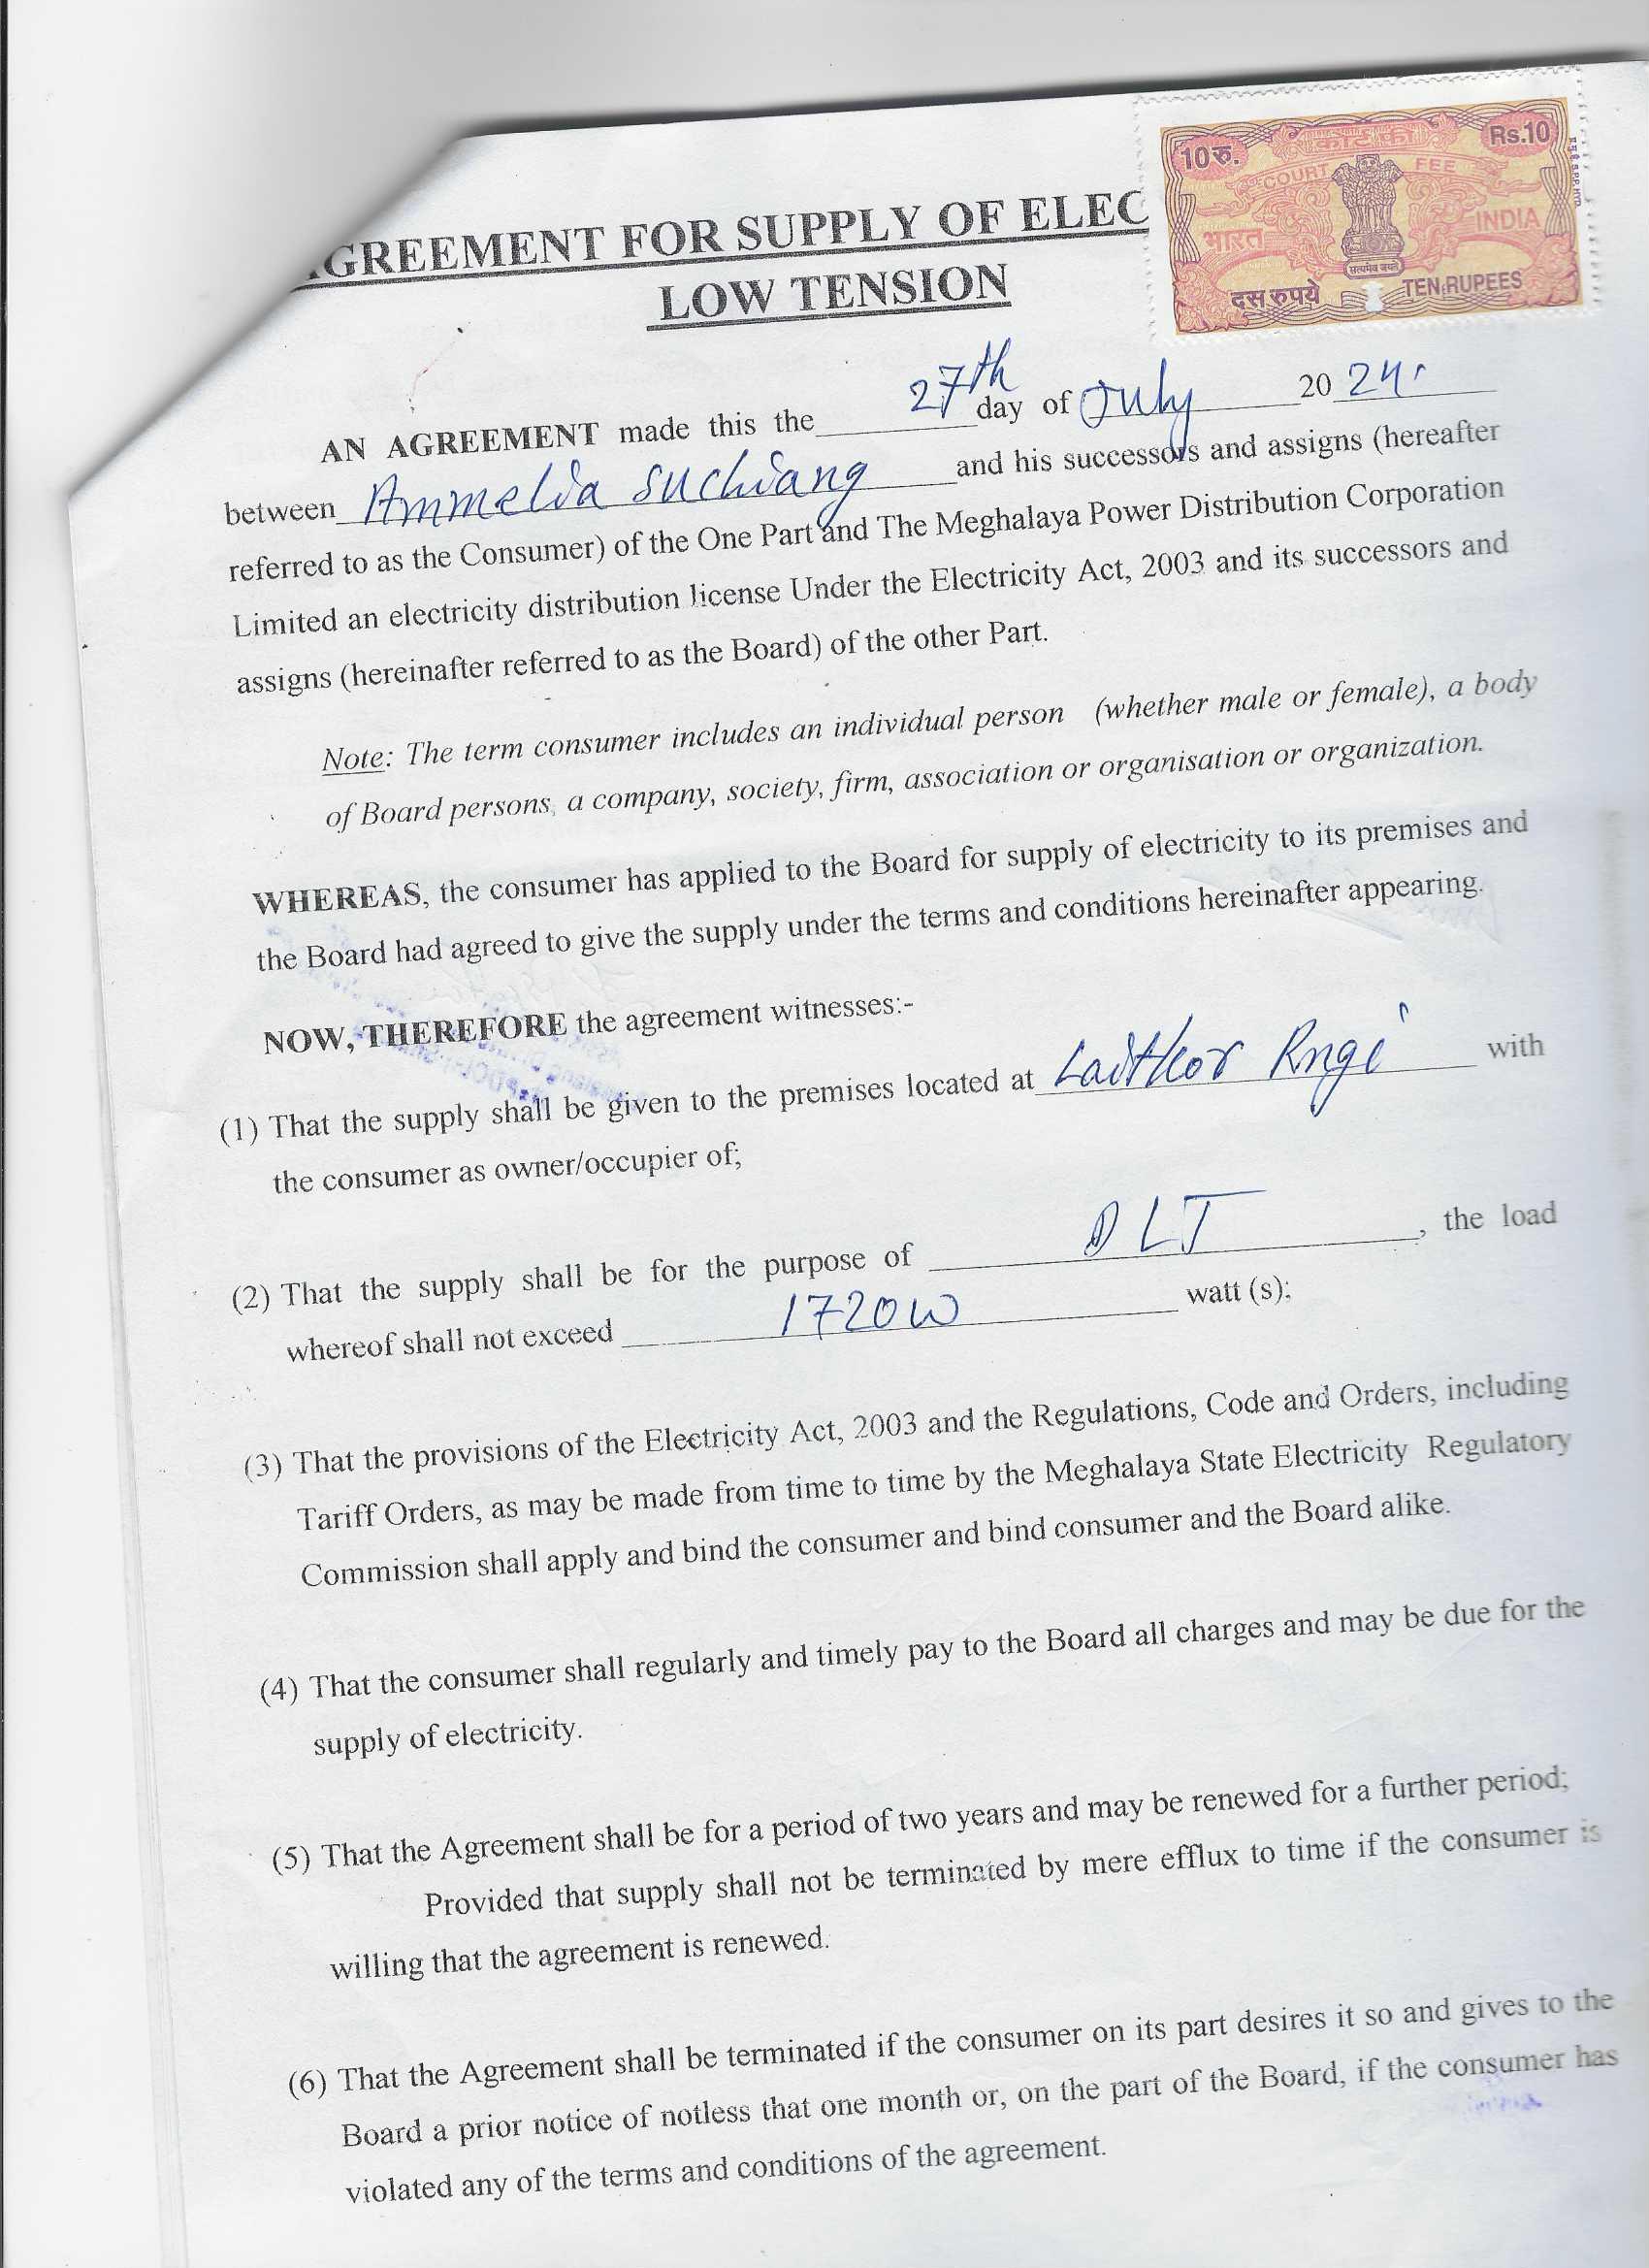 10रु. कोर्ट फी Rs.10
COURT FEE
भारत INDIA
सत्यमेव जयते
दस रुपये TEN RUPEES
GREEMENT FOR SUPPLY OF ELEC
LOW TENSION
AN AGREEMENT made this the 27th day of July 2024.
between Ammelia Suchiang and his successors and assigns (hereafter
referred to as the Consumer) of the One Part and The Meghalaya Power Distribution Corporation
Limited an electricity distribution license Under the Electricity Act, 2003 and its successors and
assigns (hereinafter referred to as the Board) of the other Part.
Note: The term consumer includes an individual person (whether male or female), a body
of Board persons, a company, society, firm, association or organisation or organization.
WHEREAS, the consumer has applied to the Board for supply of electricity to its premises and
the Board had agreed to give the supply under the terms and conditions hereinafter appearing.
NOW, THEREFORE the agreement witnesses:-
(1) That the supply shall be given to the premises located at Laitkor Rngi with
the consumer as owner/occupier of;
(2) That the supply shall be for the purpose of DLT, the load
whereof shall not exceed 1720W watt (s);
(3) That the provisions of the Electricity Act, 2003 and the Regulations, Code and Orders, including
Tariff Orders, as may be made from time to time by the Meghalaya State Electricity Regulatory
Commission shall apply and bind the consumer and bind consumer and the Board alike.
(4) That the consumer shall regularly and timely pay to the Board all charges and may be due for the
supply of electricity.
(5) That the Agreement shall be for a period of two years and may be renewed for a further period;
Provided that supply shall not be terminated by mere efflux to time if the consumer is
willing that the agreement is renewed.
(6) That the Agreement shall be terminated if the consumer on its part desires it so and gives to the
Board a prior notice of notless that one month or, on the part of the Board, if the consumer has
violated any of the terms and conditions of the agreement.